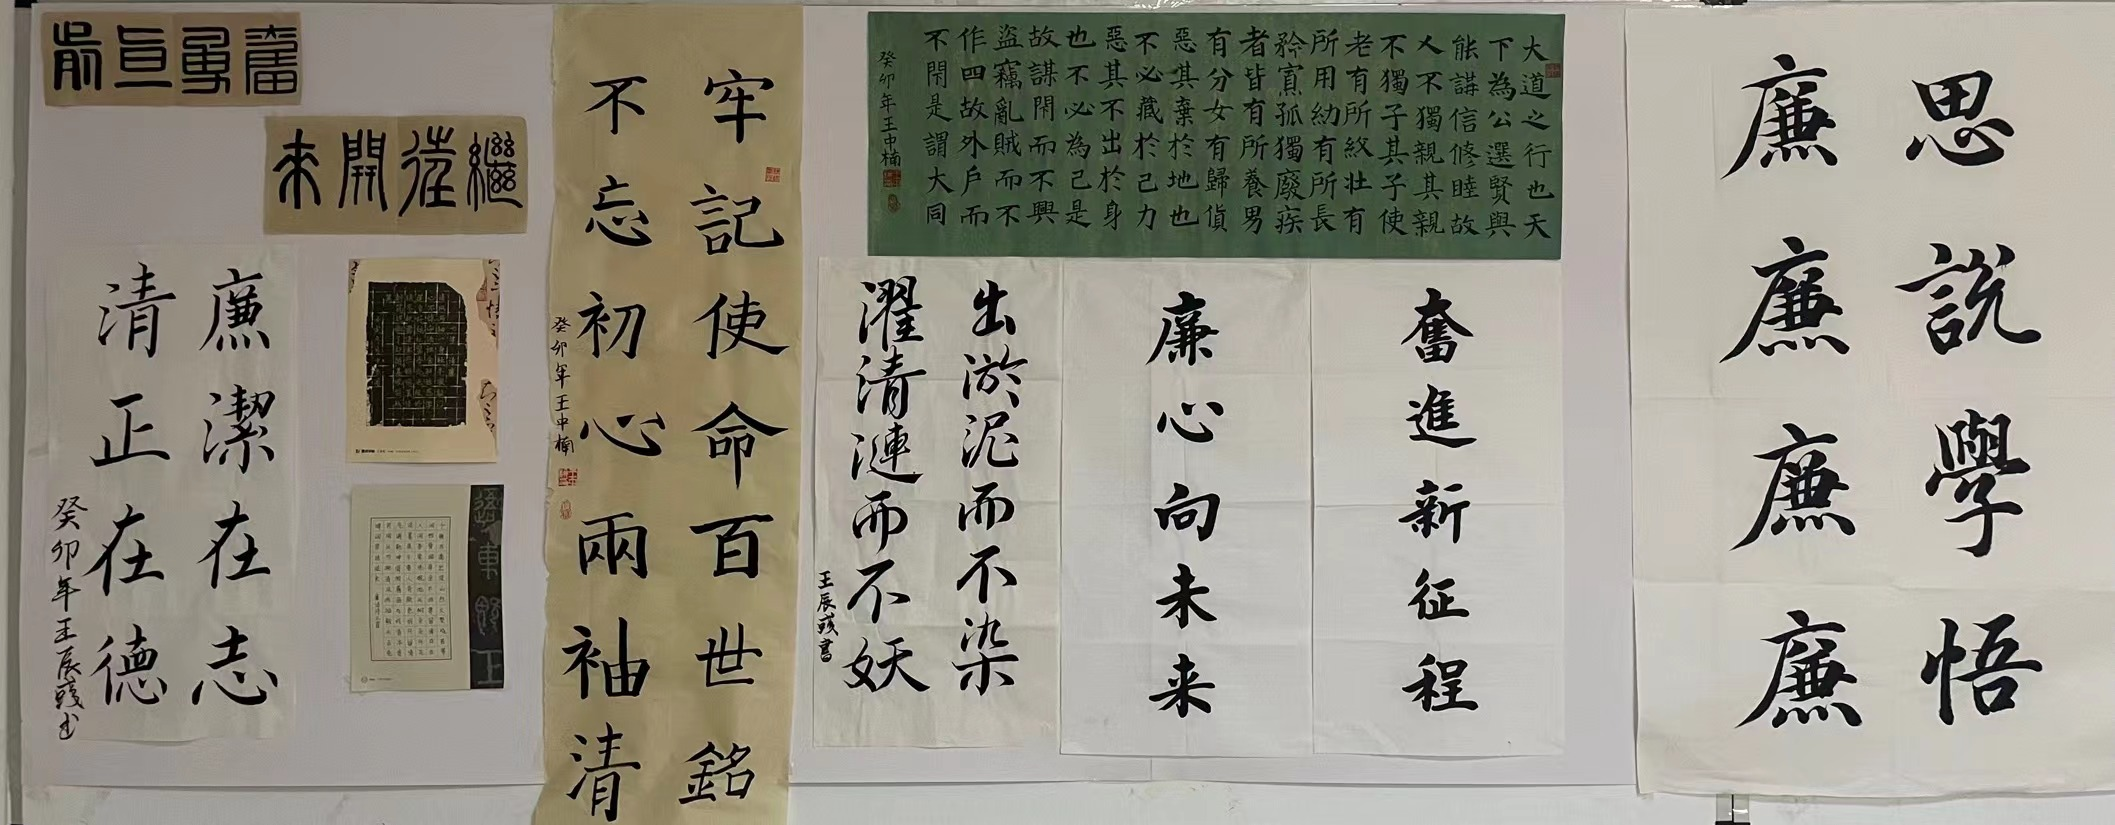 奮勇直前
繼往開來
廉潔在志
清正在德
癸卯年王辰彧书
牢記使命百世銘
不忘初心兩袖清
癸卯年王中楠
大道之行也天
下為公選賢與
能講信修睦故
人不獨親其親
不獨子其子使
老有所終壯有
所用幼有所長
矜寡孤獨廢疾
者皆有所養男
有分女有歸貨
惡其棄於地也
不必藏於己力
惡其不出於身
也不必為己是
故謀閉而不興
盜竊亂賊而不
作四故外戶而
不閉是謂大同
癸卯年王中楠
出淤泥而不染
濯清漣而不妖
王辰彧書
奮進新征程
廉心向未来
思說學悟
廉廉廉廉